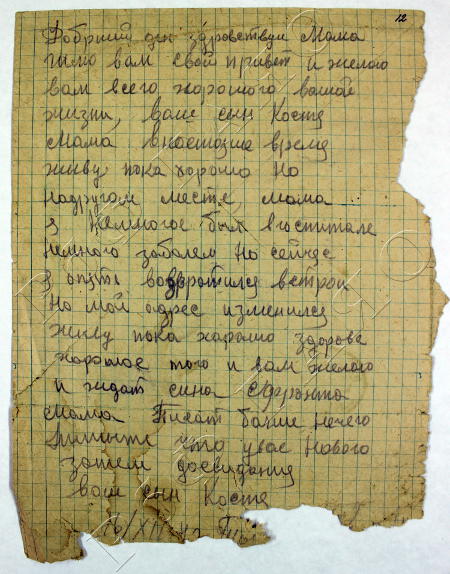 12
Добрый ден здравствуй Мама
шлю вам свой привет и желаю
вам всего хорошого вашей
жизни, ваш сын Костя
Мама внастоящие время
живу пока хорошо Но
надругом месте, мама
я немногое был вгоспитале
немного заболел Но сейчас
я опять возвротился встрой
Но мой адрес изменился
живу пока харашо здорове
хорошое того и вам желаю
и ждать сина сфронта
мама Писат болше нечего
Пишите что увас Нового
затем досвидания
ваш сын Костя